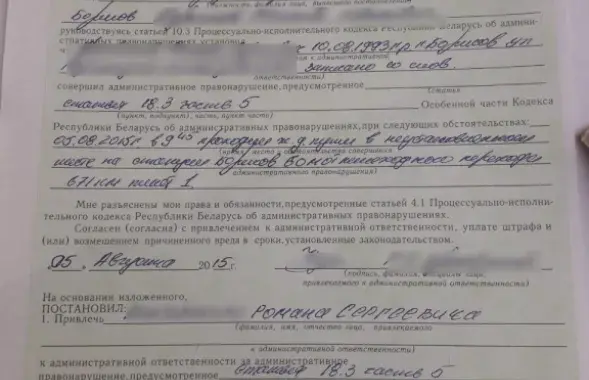 Борисов
руководствуясь статьей 10.3 Процессуально-исполнительного кодекса Республики Беларусь об админи-
стративных правонарушениях установил:
10.08.1993 г.р. г. Борисов
к административной
записано со слов.
ответственности)
совершил административное правонарушение, предусмотренное
статья
статьей 18.3 часть 5 Особенной части Кодекса
(пункт, подпункт), часть, пункт части)
Республики Беларусь об административных правонарушениях, при следующих обстоятельствах:
05.08.2015г в 9 45 проходил ж.д. пути в неустановленном
(время, место и обстоятельства совершения
месте на станции Борисов пешеходного перехода
административного правонарушения)
671 км пикет 1
Мне разъяснены мои права и обязанности, предусмотренные статьей 4.1 Процессуально-исполни-
тельного кодекса Республики Беларусь об административных правонарушениях.
Согласен (согласна) с привлечением к административной ответственности, уплате штрафа и
(или) возмещением причиненного вреда в сроки, установленные законодательством.
05. Августа 2015 г.
(подпись, фамилия, инициалы лица,
привлекаемого к административной ответственности)
На основании изложенного,
ПОСТАНОВИЛ:
1. Привлечь Романа Сергеевича
(фамилия, имя, отчество лица, привлекаемого
к административной ответственности)
к административной ответственности за административное
правонарушение, предусмотренное статьей 18.3 часть 5